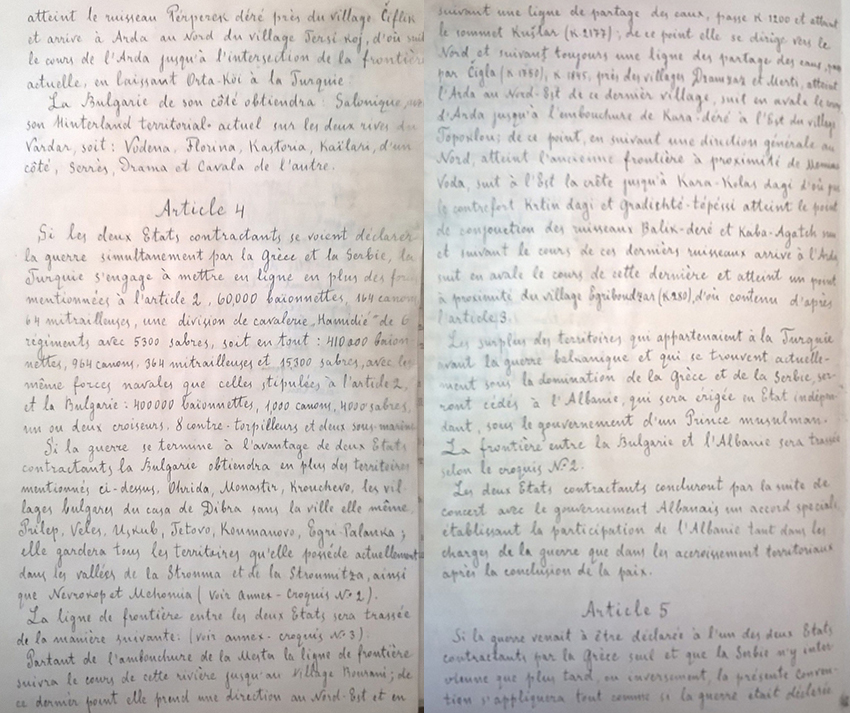 atteint le ruisseau Perperek déré près du village Čiflik
et arrive à Arda au Nord du village Tersi Koj, d'où suit
le cours de l'Arda jusqu'à l'intersection de la frontière
actuelle, en laissant Orta-Köi à la Turquie.
La Bulgarie de son côté obtiendra: Salonique,
son Hinterland territorial actuel sur les deux rives du
Vardar, soit: Vodena, Florina, Kastoria, Kaïlari, d'un
côté, Serrès, Drama et Cavala de l'autre.
Article 4
Si les deux Etats contractants se voient déclarer
la guerre simultanement par la Grèce et la Serbie, la
Turquie s'engage à mettre en ligne en plus des for
mentionnées à l'article 2, 60,000 baïonnettes, 164 canons,
64 mitrailleuses, une division de cavalerie „Hamidié" de 6
régiments avec 5300 sabres, soit en tout: 410000 baïon-
nettes, 964 canons, 364 mitrailleuses et 15300 sabres, avec les
même forces navales que celles stipulées à l'article 2,
et la Bulgarie: 400000 baïonnettes, 1,000 canons, 4000 sabres,
un ou deux croiseurs, 8 contre-torpilleurs et deux sous-marins.
Si la guerre se termine à l'avantage de deux Etats
contractants la Bulgarie obtiendra en plus des territoires
mentionnés ci-dessus, Ohrida, Monastir, Krouchevo, les vil-
lages bulgares du casa de Dibra sans la ville elle même,
Prilep, Veles, Uskub, Tetovo, Koumanovo, Egri-Palanka;
elle gardera tous les territoires qu'elle possède actuellement
dans les vallées de la Strouma et de la Stroumitza, ainsi
que Nevrokop et Mehomia (voir Annex-Croquis № 2).
La ligne de frontière entre les deux Etats sera trassée
de la manière suivante: (voir annex-croquis № 3):
Partant de l'ambouchure de la Mesta la ligne de frontière
suivra le cours de cette rivière jusqu'au village Bourani; de
ce dernier point elle prend une direction au Nord-Est et en
suivant une ligne de partage des eaux, passe K 1200 et atteint
le sommet Kušlar (K 2177); de ce point elle se dirige vers le
Nord et suivant toujours une ligne des partage des eaux,
par Čigla (K 1750), K 1845, près des villages Dramzar et Merti, atteint
l'Arda au Nord-Est de ce dernier village, suit en avale le cours
d'Arda jusqu'à l'embouchure de Kara-déré à l'Est du village
Topoklou; de ce point, en suivant une direction générale au
Nord, atteint l'ancienne frontière à proximité de
Voda, suit à l'Est la crête jusqu'à Kara-Kolas dagi d'où par
le contrefort Krtin dagi et Gradichté-tépéssi atteint le point
de conjouction des ruisseaux Balik-deré et Kaba-Agatch
et suivant le cours de ces derniers ruisseaux arrive à l'Arda
suit en avale le cours de cette dernière et atteint un point
à proximité du village Egriboudzar (K 280), d'où contenu d'après
l'article 3.
Les surplus des territoires qui appartenaient à la Turquie
avant la guerre balkanique et qui se trouvent actuelle-
ment sous la domination de la Grèce et de la Serbie, se-
ront cédés à l'Albanie, qui sera érigée en Etat indépen-
dant, sous le gouvernement d'un Prince musulman.
La frontière entre la Bulgarie et l'Albanie sera trassée
selon le croquis № 2.
Les deux Etats contractants concluront par la suite de
concert avec le gouvernement Albanais un accord spécial,
établissant la participation de l'Albanie tant dans les
charges de la guerre que dans les accroissement territoriaux
après la conclusion de la paix.
Article 5
Si la guerre venait à être déclarée à l'un des deux Etats
contractants par la Grèce seul et que la Serbie n'y inter-
vienne que plus tard, ou inversement, la présente Conven-
tion s'appliquera tout comme si la guerre était déclarée